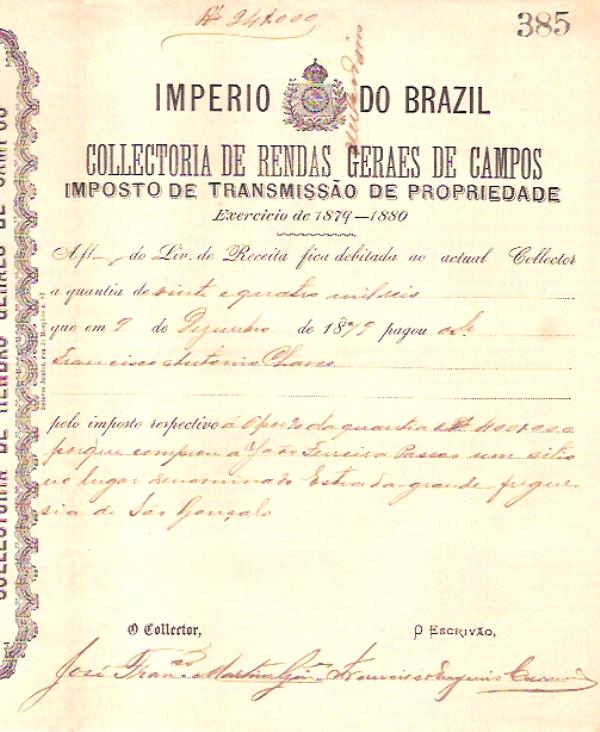 Rs 24$000
385
IMPERIO DO BRAZIL
COLLECTORIA DE RENDAS GERAES DE CAMPOS
IMPOSTO DE TRANSMISSÃO DE PROPRIEDADE
Exercicio de 1879—1880
A fl. do Liv. de Receita fica debitada ao actual Collector
a quantia de vinte e quatro mil reis
que em 9 de Dezembro de 1879 pagou o Sr.
Francisco Antonio Chaves
pelo imposto respectivo á 6 por % da quantia de Rs 400$000
porque comprou a João Ferreira Passos um sitio
no lugar denominado Estrada grande fregue-
sia de São Gonçalo
O Collector, O ESCRIVÃO,
José Fran.co Martins Francisco Eugenio
COLLECTORIA DE RENDAS GERAES DE CAMPOS